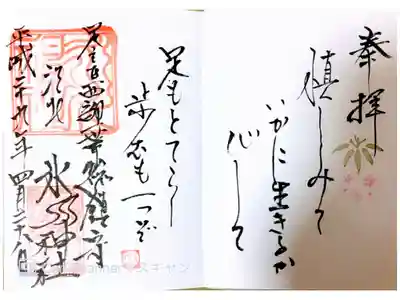 奉拝
慎しみて
いかに生きるか
心して
足もとてらし
歩むも一つぞ
鎮守
江北 氷川神社
平成二十九年四月二十八日